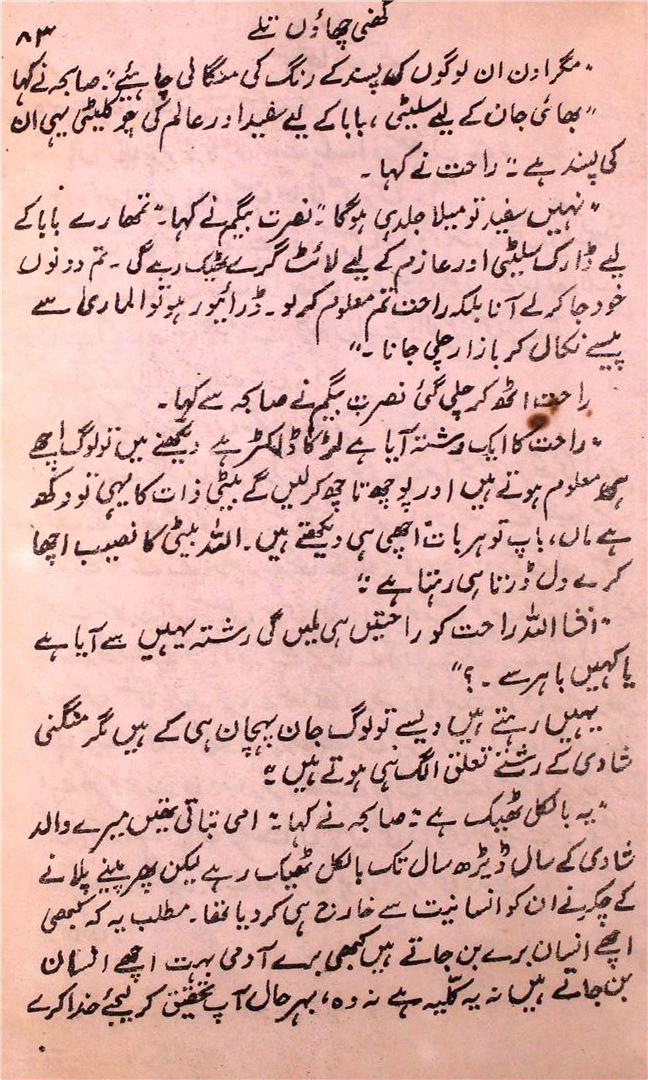 گھنی چھاؤں تلے
۸۳
"مگر اون ان لوگوں کی پسند کے رنگ کی منگالی چاہئیے" صابحہ نے کہا
"بھائی جان کے لیے سلیٹی، بابا کے لیے سفید اور عالم کی جو کلیٹی یہی ان
کی پسند ہے" راحت نے کہا۔
"نہیں سفید تو میلا جلد ہی ہوگا" نصرت بیگم نے کہا۔ "تمھارے بابا کے
لیے ڈارک سلیٹی اور عازم کے لیے لائٹ گرے ٹھیک رہے گی۔ تم دونوں
خود جا کر لے آنا بلکہ راحت تم معلوم کر لو۔ ڈرائیور ہو تو الماری سے
پیسے نکال کر بازار چلی جانا۔"
راحت اٹھ کر چلی گئی نصرت بیگم نے صابحہ سے کہا۔
"راحت کا ایک رشتہ آیا ہے لڑکا ڈاکٹر ہے دیکھنے میں تو لوگ اچھے
ہی معلوم ہوتے ہیں اور پوچھ تاچھ کر لیں گے بیٹی ذات کا یہی تو دکھ
ہے ماں، باپ تو ہر بات اچھی ہی دیکھتے ہیں۔ اللہ بیٹی کا نصیب اچھا
کرے دل ڈرتا ہی رہتا ہے"
"انشا اللہ راحت کو راحتیں ہی ملیں گی رشتہ یہیں سے آیا ہے
یا کہیں باہر سے۔؟"
یہیں رہتے ہیں ویسے تو لوگ جان پہچان ہی کے ہیں مگر منگنی
شادی کے رشتے تعلق الگ ہی ہوتے ہیں"
"یہ بالکل ٹھیک ہے" صابحہ نے کہا "امی بتاتی تھیں میرے والد
شادی کے سال ڈیڑھ سال تک بالکل ٹھیک رہے لیکن پھر پینے پلانے
کے چکر نے ان کو انسانیت سے خارج ہی کر دیا تھا۔ مطلب یہ کہ کبھی
اچھے انسان برے بن جاتے ہیں کبھی برے آدمی بہت اچھے انسان
بن جاتے ہیں نہ یہ کلّیہ ہے نہ وہ، بہر حال آپ تحقیق کر لیجئے خدا کرے